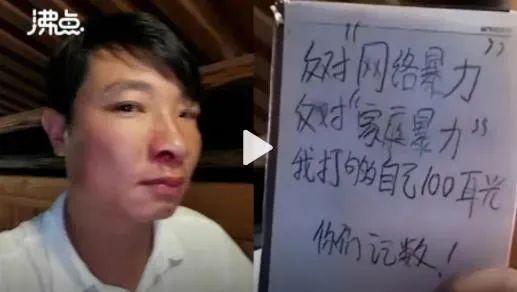 沸点
反对“网络暴力”
反对“家庭暴力”
我打的自己100耳光
你们记数！